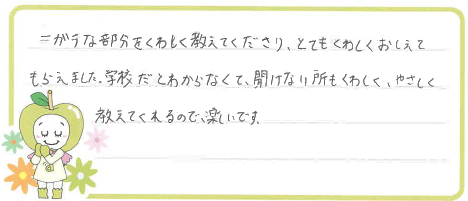 ニガテな部分をくわしく教えてくださり、とてもくわしくおしえて
もらえました。学校だとわからなくて、聞けない所もくわしく、やさしく
教えてくれるので、楽しいです。